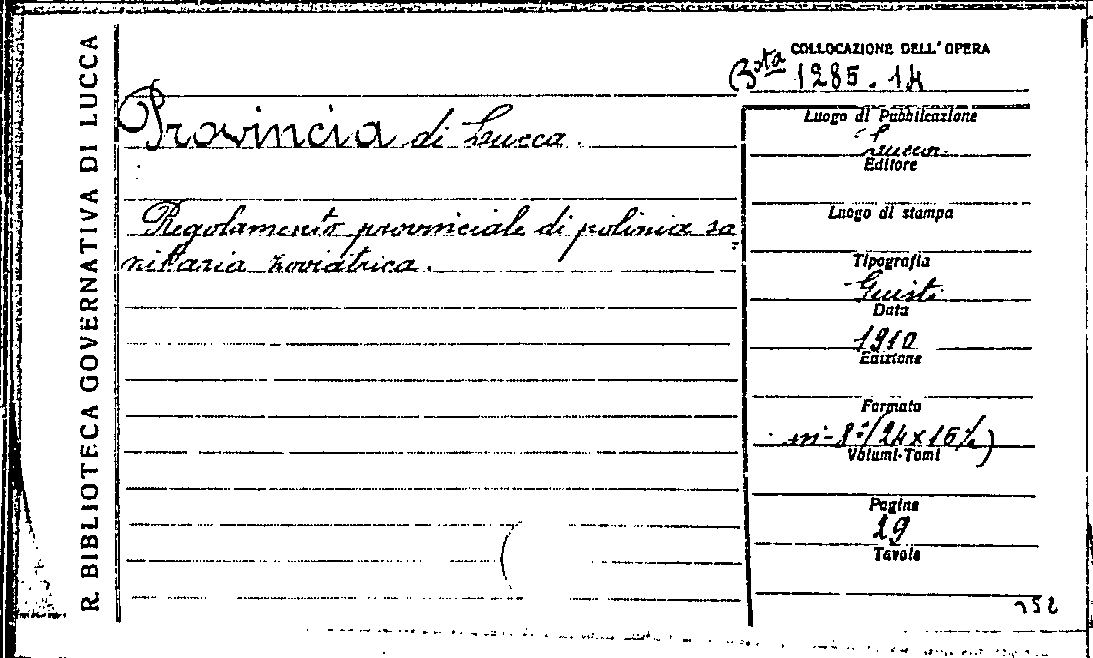 R. BIBLIOTECA GOVERNATIVA DI LUCCA
COLLOCAZIONE DELL'OPERA
Bsta 1285.14
Provincia di Lucca.
Regolamento provinciale di polizia sa=
nitaria zooiatrica.
Luogo di Pubblicazione
Lucca
Editore
Luogo di stampa
Tipografia
Giusti
Data
1910
Edizione
Formato
in-8°(24x16½)
Volumi-Tomi
Pagine
29
Tavole